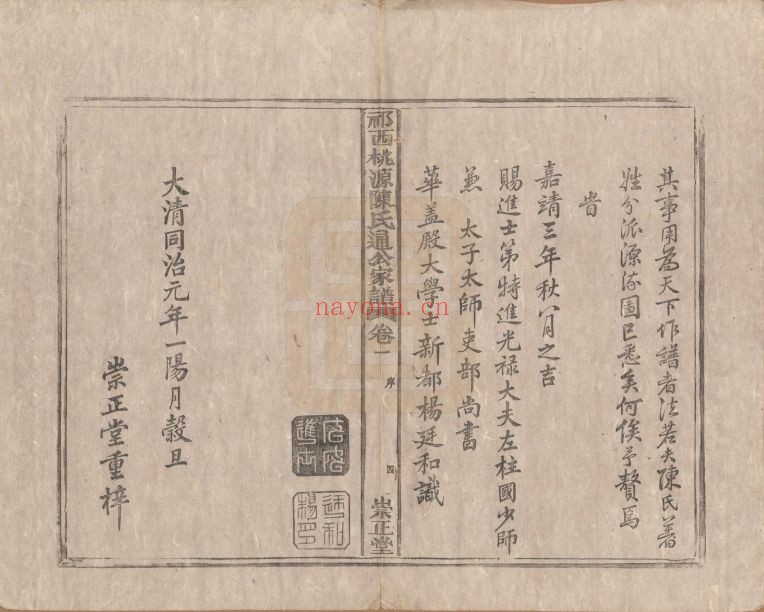 其事用為天下作譜者法若夫陳氏著
姓分派源流圖已悉矣何俟予贅焉
旹
嘉靖三年秋八月之吉
賜進士第特進光禄大夫左柱國少師
兼 太子太師吏部尚書
華盖殿大學士新都楊廷和識
祁西桃源陳氏通公家譜 卷一 序 四 崇正堂
大清同治元年一陽月穀旦
崇正堂重梓
進士
廷和
楊印
nayona.cn